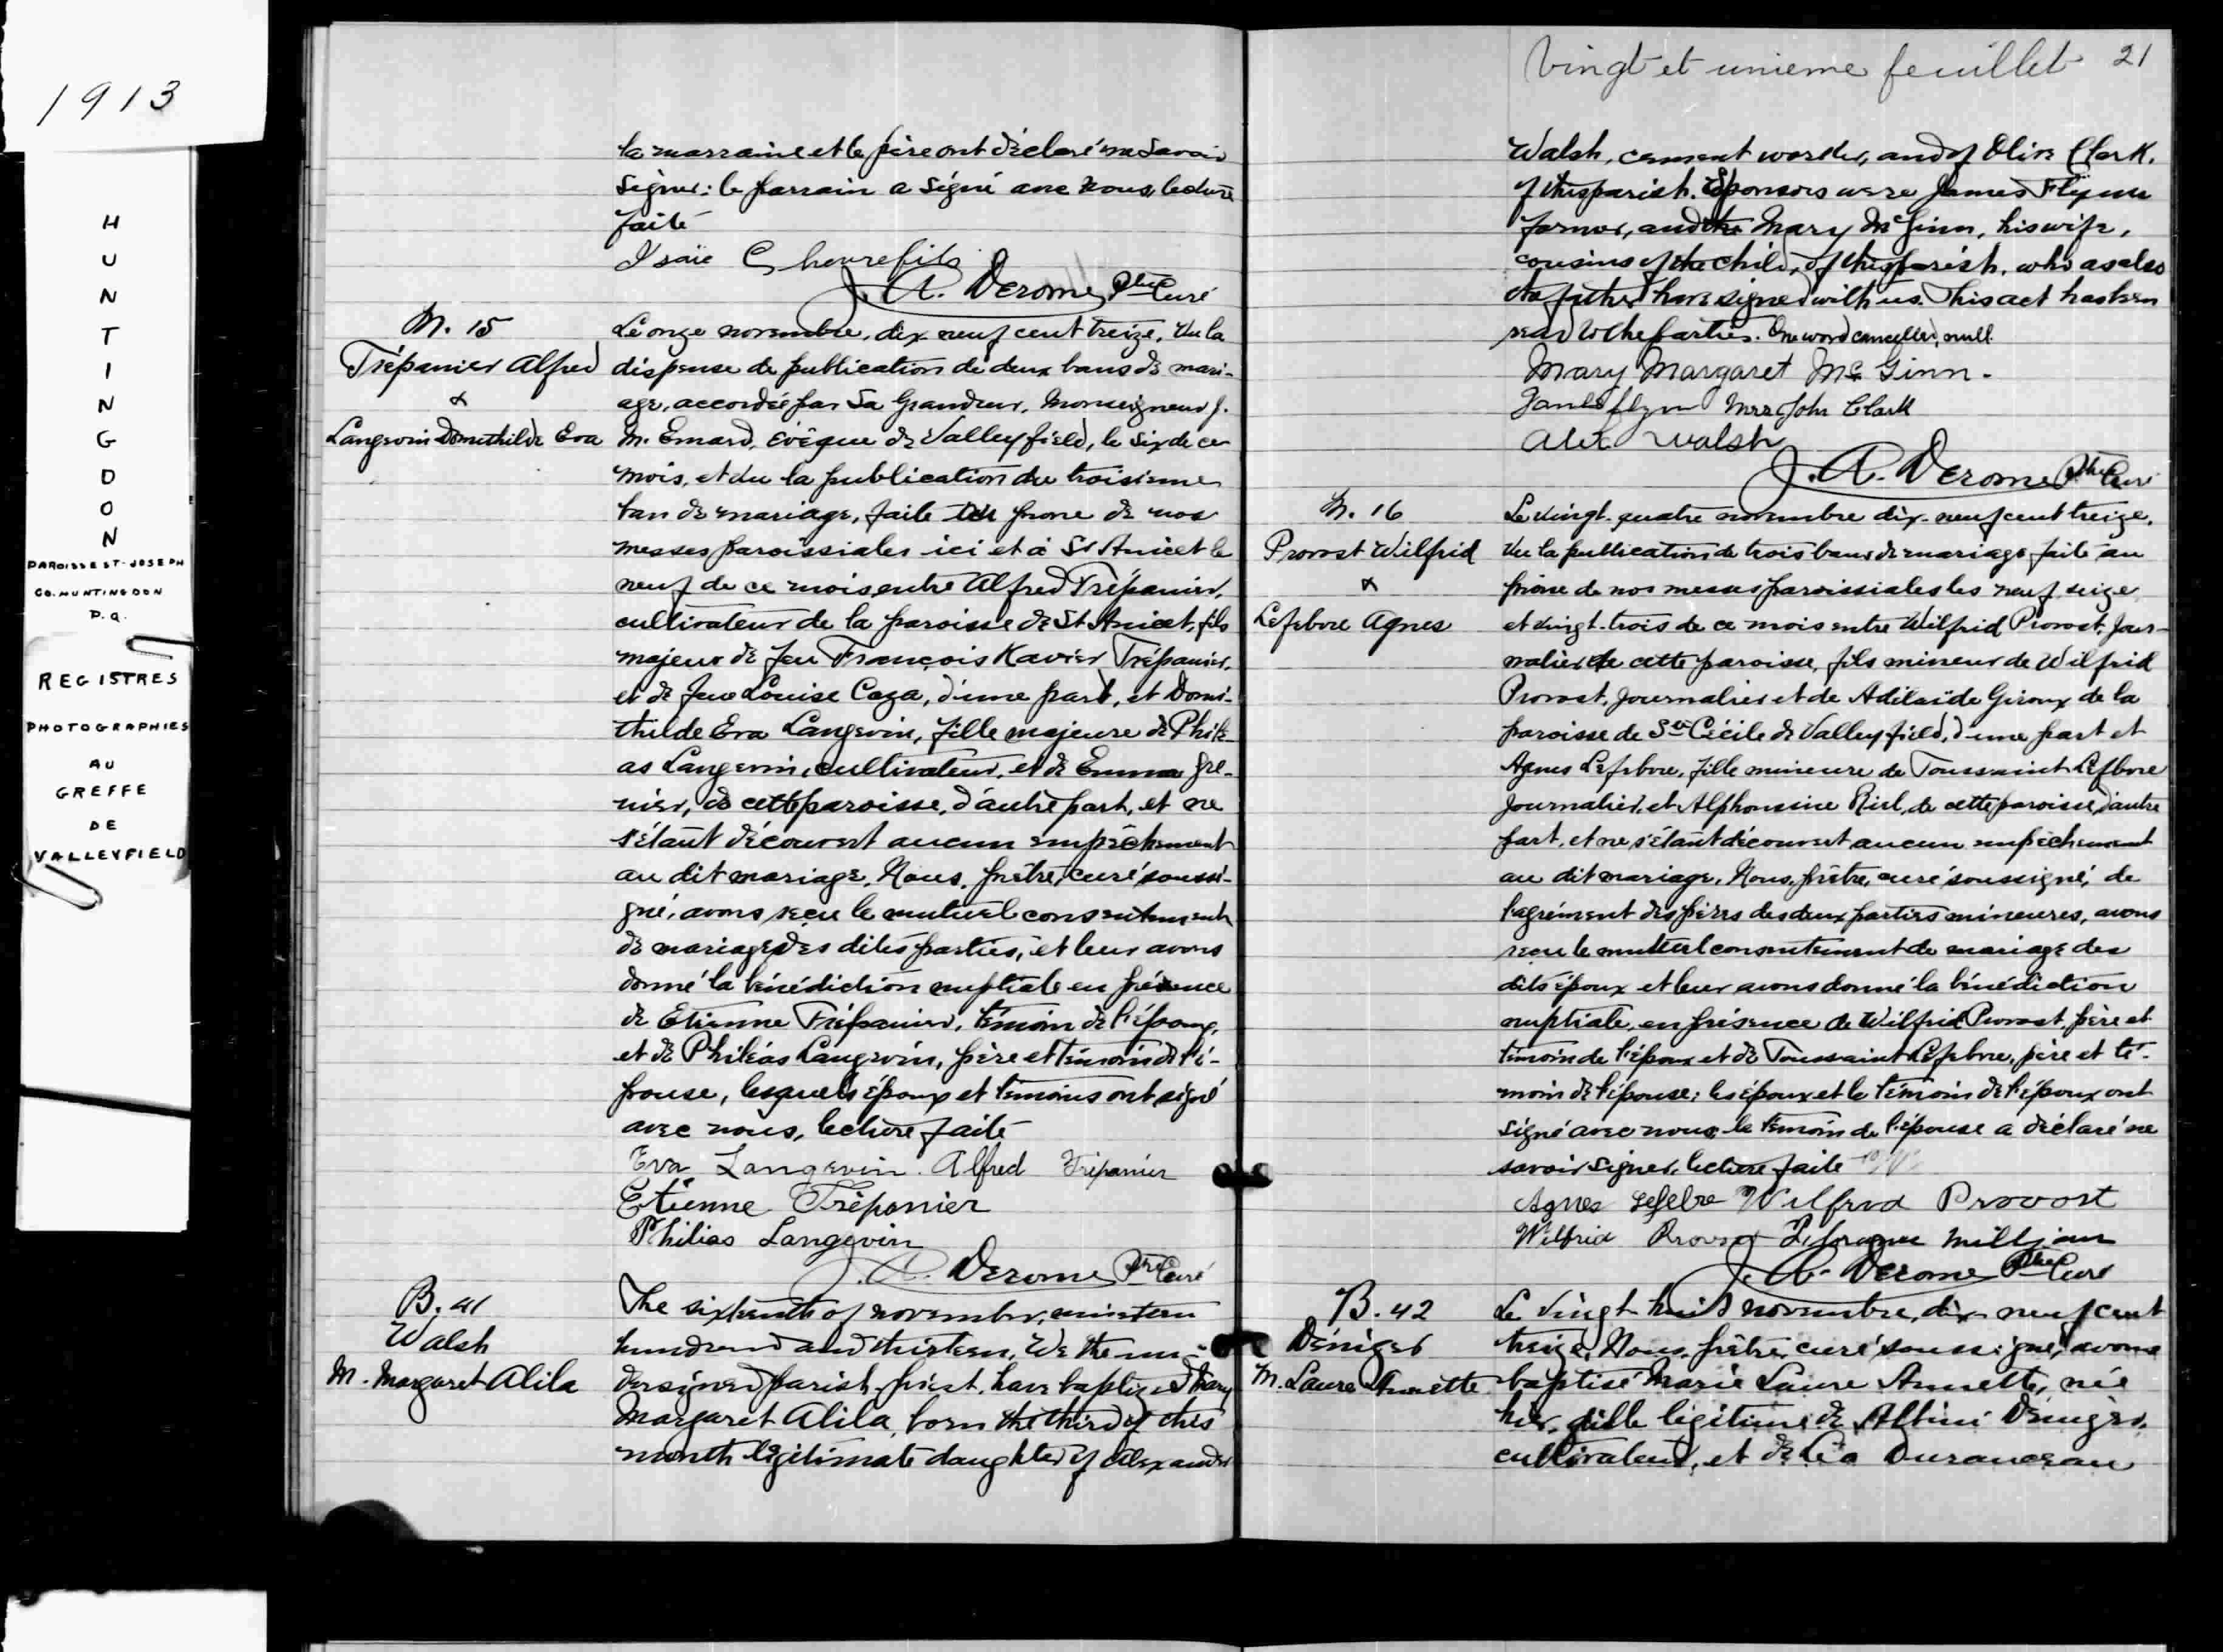 1913
HUNTINGDON
PAROISSE ST-JOSEPH
CO. HUNTINGDON
P.Q.
REGISTRES
PHOTOGRAPHIES
AU
GREFFE
DE
VALLEYFIELD
la marraine et le père ont déclaré ne savoir
signer: le parrain a signé avec nous, lecture
faite
Isaïe Chevrefils
J. A. Derome, Ptre Curé
M. 15
Trépanier Alfred
&
Langevin Domithilde Eva
Le onze novembre, dix-neuf cent treize, Vu la
dispense de publication de deux bans de mari-
age, accordée par Sa Grandeur, Monseigneur J.
M. Emard, Evêque de Valleyfield, le six de ce
mois, et vu la publication du troisième
ban de mariage, faite au prone de nos
messes paroissiales ici et à St Anicet le
neuf de ce mois entre Alfred Trépanier,
cultivateur de la paroisse de St Anicet, fils
majeur de feu François Xavier Trépanier,
et de feue Louise Caza, d'une part, et Domi-
thilde Eva Langevin, fille majeure de Philé-
as Langevin, cultivateur, et de Emma Gre-
nier, de cette paroisse, d'autre part, et ne
s'étant découvert aucun empêchement
au dit mariage, Nous, prêtre, curé soussi-
gné, avons reçu le mutuel consentement
de mariage des dites parties, et leur avons
donné la bénédiction nuptiale en présence
de Etienne Trépanier, témoin de l'époux,
et de Philéas Langevin, père et témoin de l'é-
pouse, lesquels époux et témoins ont signé
avec nous, lecture faite
Eva Langevin. Alfred Trépanier
Etienne Trépanier
Philias Langevin
J. A. Derome Ptre Curé
B. 41
Walsh
M. Margaret Alila
The sixteenth of november, nineteen
hundred and thirteen, We the un-
dersigned parish-priest, have baptized Mary
Margaret Alila, born the third of this
month legitimate daughter of Alexander
Vingt et unieme feuillet 21
Walsh, cement worker, and of Olive Clark,
of this parish. Sponsors were James Flynn
farmer, and the Mary McGinn, his wife,
cousins of the child, of this parish, who as also
the father have signed with us. This act has been
read to the parties. One word cancelled, null.
Mary Margaret McGinn.
James flynn Mrs John Clark
Alex Walsh
J. A. Derome Ptre Curé
M. 16
Provost Wilfrid
&
Lefebvre Agnes
Le vingt-quatre novembre dix-neuf cent treize,
Vu la publication de trois bans de mariage faite au
prone de nos messes paroissiales les neuf, seize
et vingt-trois de ce mois entre Wilfrid Provost, jour-
nalier de cette paroisse, fils mineur de Wilfrid
Provost, journalier et de Adélaïde Giroux de la
paroisse de Ste Cécile de Valleyfield, d'une part et
Agnes Lefebvre, fille mineure de Toussaint Lefbvre
journalier, et Alphonsine Riel, de cette paroisse, d'autre
part, et ne s'étant découvert aucun empêchement
au dit mariage, Nous, prêtre, curé soussigné, de
l'agrément des pères des deux parties mineures, avons
reçu le mutuel consentement de mariage des
dits époux et leur avons donné la bénédiction
nuptiale, en présence de Wilfrid Provost, père et
témoin de l'époux et de Toussaint Lefebvre, père et té-
moin de l'épouse; les époux et le témoin de l'époux ont
signé avec nous, le témoin de l'épouse a déclaré ne
savoir signer, lecture faite
Agnes Lefebre Wilfrid Provost
Wilfrid Provost
J. A. Derome Ptre Curé
B. 42
Déniger
M. Laure Annette
Le vingt-huit novembre, dix-neuf cent
treize, Nous, prêtre, curé soussigné, avons
baptisé Marie Laure Annette, née
hier, fille légitime de Albini Déniger,
cultivateur, et de Léa Duranceau